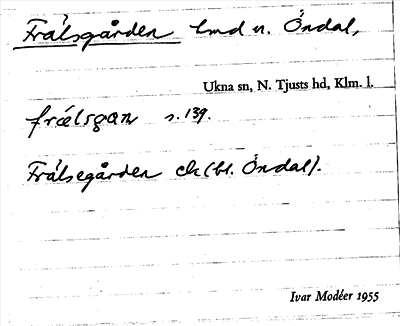 Frälsgården hmd u. Öndal,
Ukna sn, N. Tjusts hd, Klm. l.
frælsgan s. 139.
Frälsegården ck (bl. Öndal).
Ivar Modéer 1955